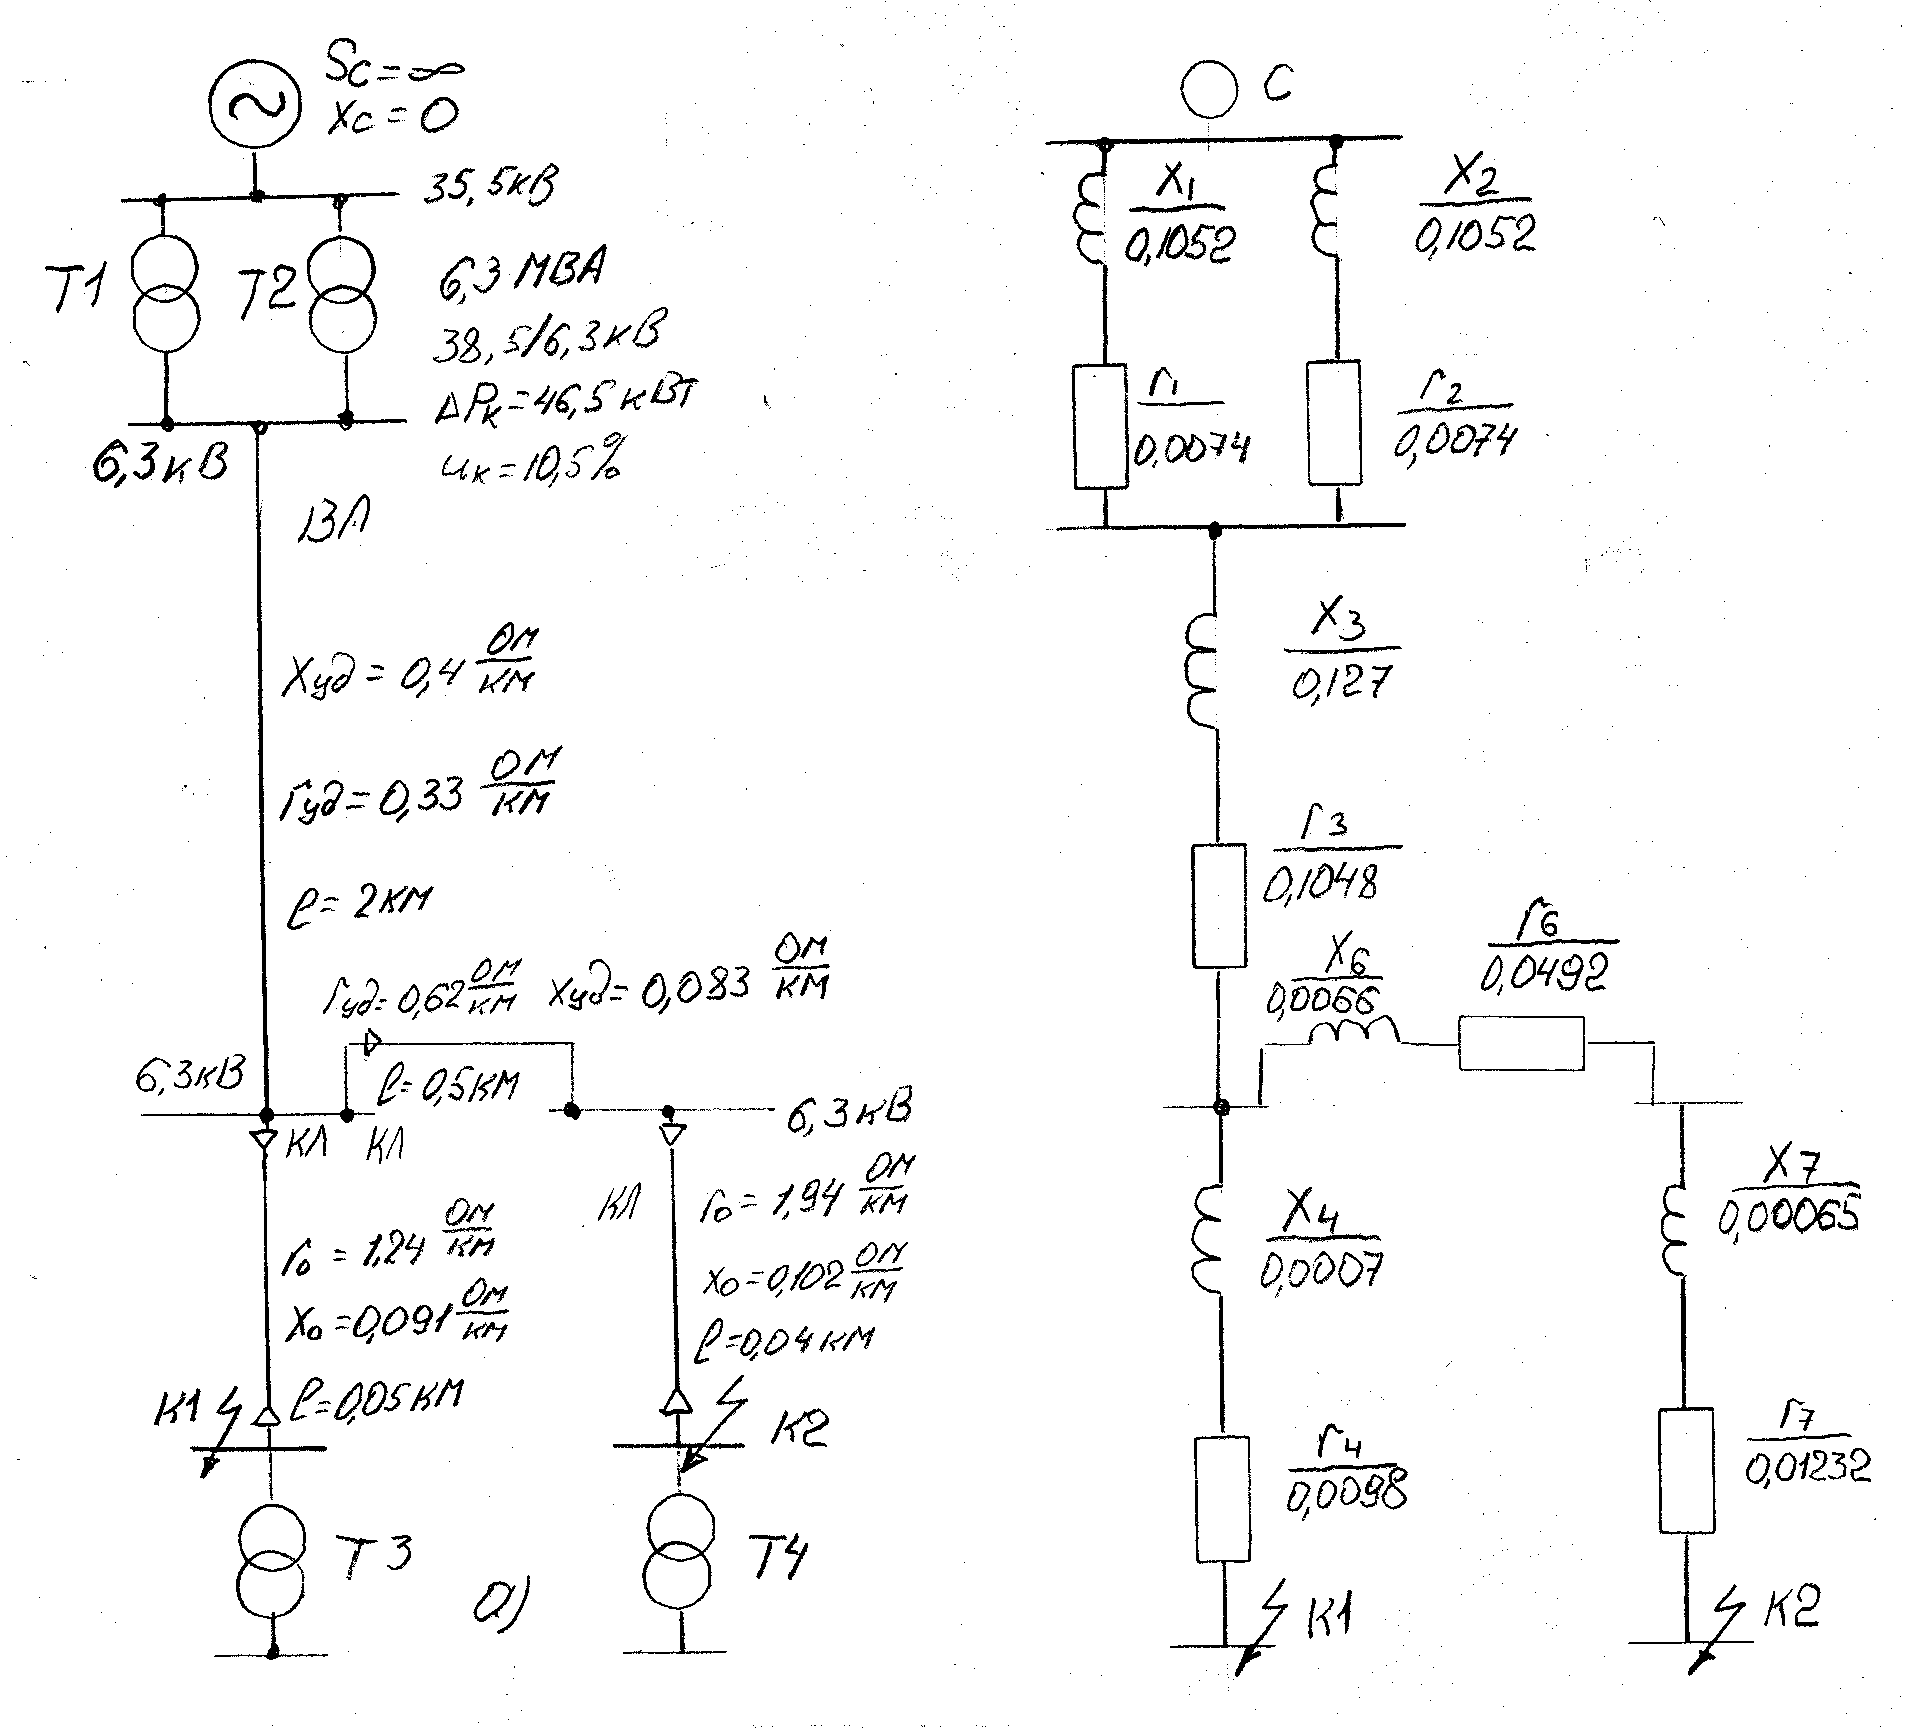 Sс=∞
Xс=0
35,5кВ
Т1
Т2
6,3 МВА
38,5/6,3кВ
ΔPк=46,5кВт
uк=10,5%
6,3кВ
ВЛ
Xуд=0,4 Ом/км
rуд=0,33 Ом/км
ℓ=2км
rуд=0,62 Ом/км
xуд=0,083 Ом/км
6,3кВ
ℓ=0,5км
6,3кВ
КЛ
КЛ
КЛ
r0=1,24 Ом/км
X0=0,091 Ом/км
ℓ=0,05км
r0=1,94 Ом/км
x0=0,102 Ом/км
ℓ=0,04км
К1
К2
Т3
Т4
а)
С
X1
0,1052
X2
0,1052
r1
0,0074
r2
0,0074
X3
0,127
r3
0,1048
X6
0,0066
r6
0,0492
X4
0,0007
X7
0,00065
r4
0,0098
r7
0,01232
К1
К2